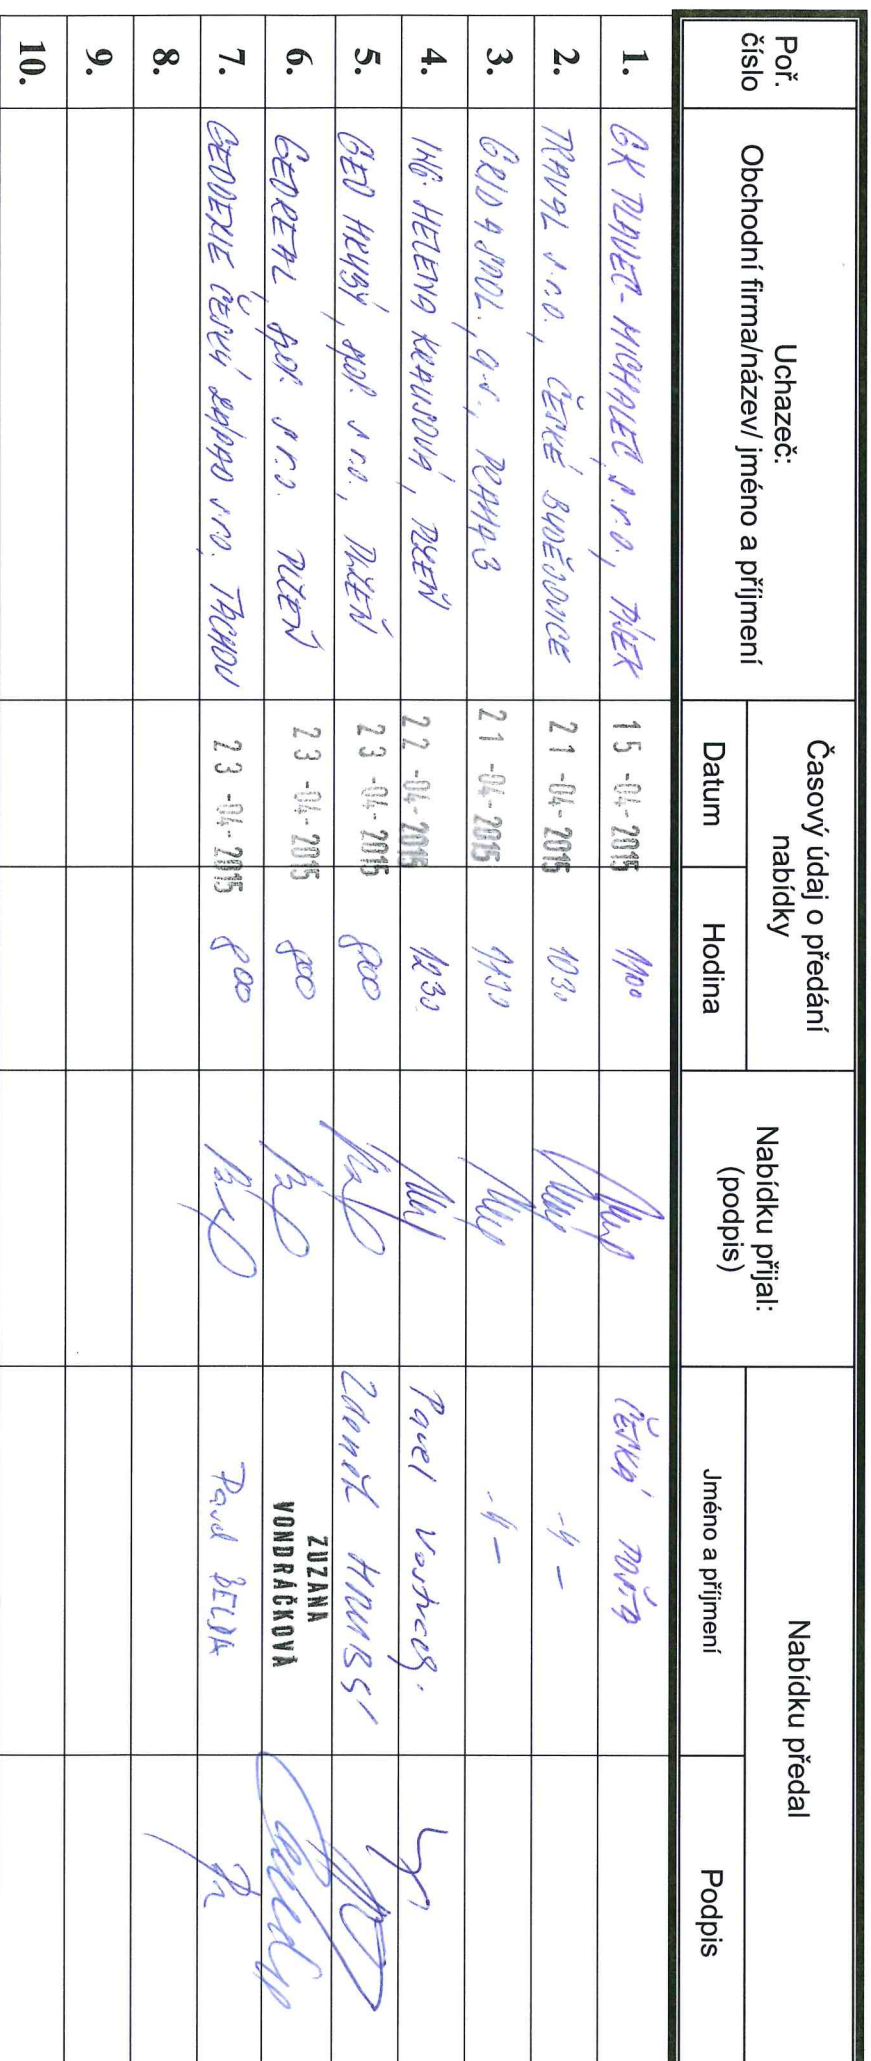 Poř. číslo
Uchazeč:
Obchodní firma/název/ jméno a příjmení
Časový údaj o předání nabídky
Datum
Hodina
Nabídku přijal:
(podpis)
Nabídku předal
Jméno a příjmení
Podpis
1. GK PLAVEC - MICHALEC, s.r.o., PÍSEK 15 -04- 2015 1100 ČESKÁ POŠTA
2. s.r.o., ČESKÉ BUDĚJOVICE 21 -04- 2015 1030 -"-
3. GRID A SPOL., a.s., PRAHA 3 21 -04- 2015 1130 -"-
4. ING. HELENA KRAUSOVÁ, PLZEŇ 22 -04- 2015 1230 Pavel
5. GEO HRUBÝ, spol. s r.o., PLZEŇ 23 -04- 2015 800 Zdeněk HRUBÝ
6. GEOREAL, spol. s r.o. PLZEŇ 23 -04- 2015 800 ZUZANA VONDRÁČKOVÁ
7. GEODEZIE ČESKÝ ZÁPAD s.r.o. TACHOV 23 -04- 2015 800 Pavel BELDA
8.
9.
10.